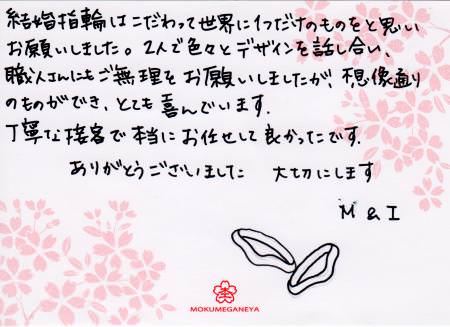 結婚指輪はこだわって世界に1つだけのものをと思い
お願いしました。2人で色々とデザインを話し合い、
職人さんにもご無理をお願いしましたが、想像通り
のものができ、とても喜んでいます。
丁寧な接客で本当にお任せして良かったです。
ありがとうございました 大切にします
M & I
MOKUMEGANEYA